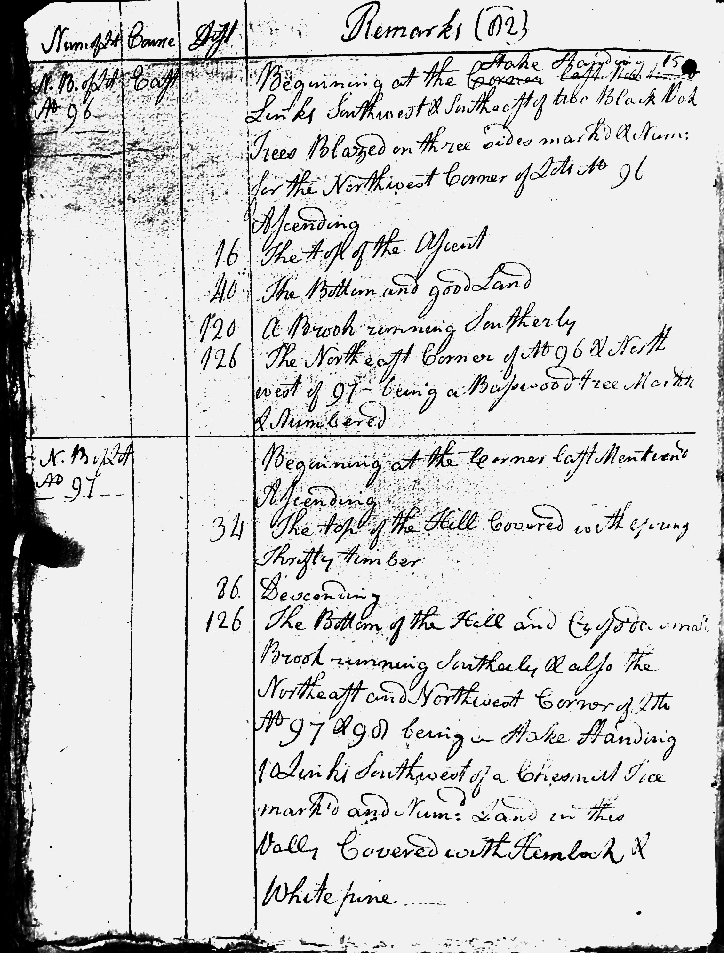 Num of Lt Course Dist Remarks (112)
N. B. of Lt East Beginning at the Corner Stake Standing 15
No 96 Links Southwest & Southeast of two Black Oak
Trees Blazed on three sides mark'd & Num:
for the Northwest Corner of Lots No 96
Ascending
16 The top of the Ascent
40 The Bottom and good Land
120 A Brook running Southerly
126 The Northeast Corner of No 96 & North
west of 97 - being a Basswood tree Markd
& Numbered
N. B of Lt Beginning at the Corner last Mentiond
No 97 Ascending
34 The top of the Hill Covered with young
Thrifty timber
86 Descending
126 The Bottom of the Hill and Crossd a small
Brook running Southerly & also the
Northeast and Northwest Corner of Lts
No 97 & 98 being a Stake Standing
Links Southwest of a Chesnutt Tree
mark'd and Num:d Land in this
Vally Covered with Hemlock &
White pine